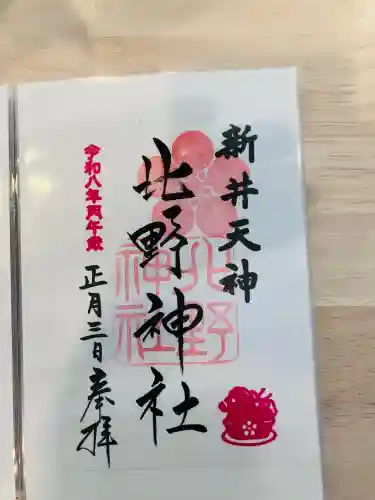 新井天神
北野神社
北野
神社
令和八年丙午歳
正月三日奉拝